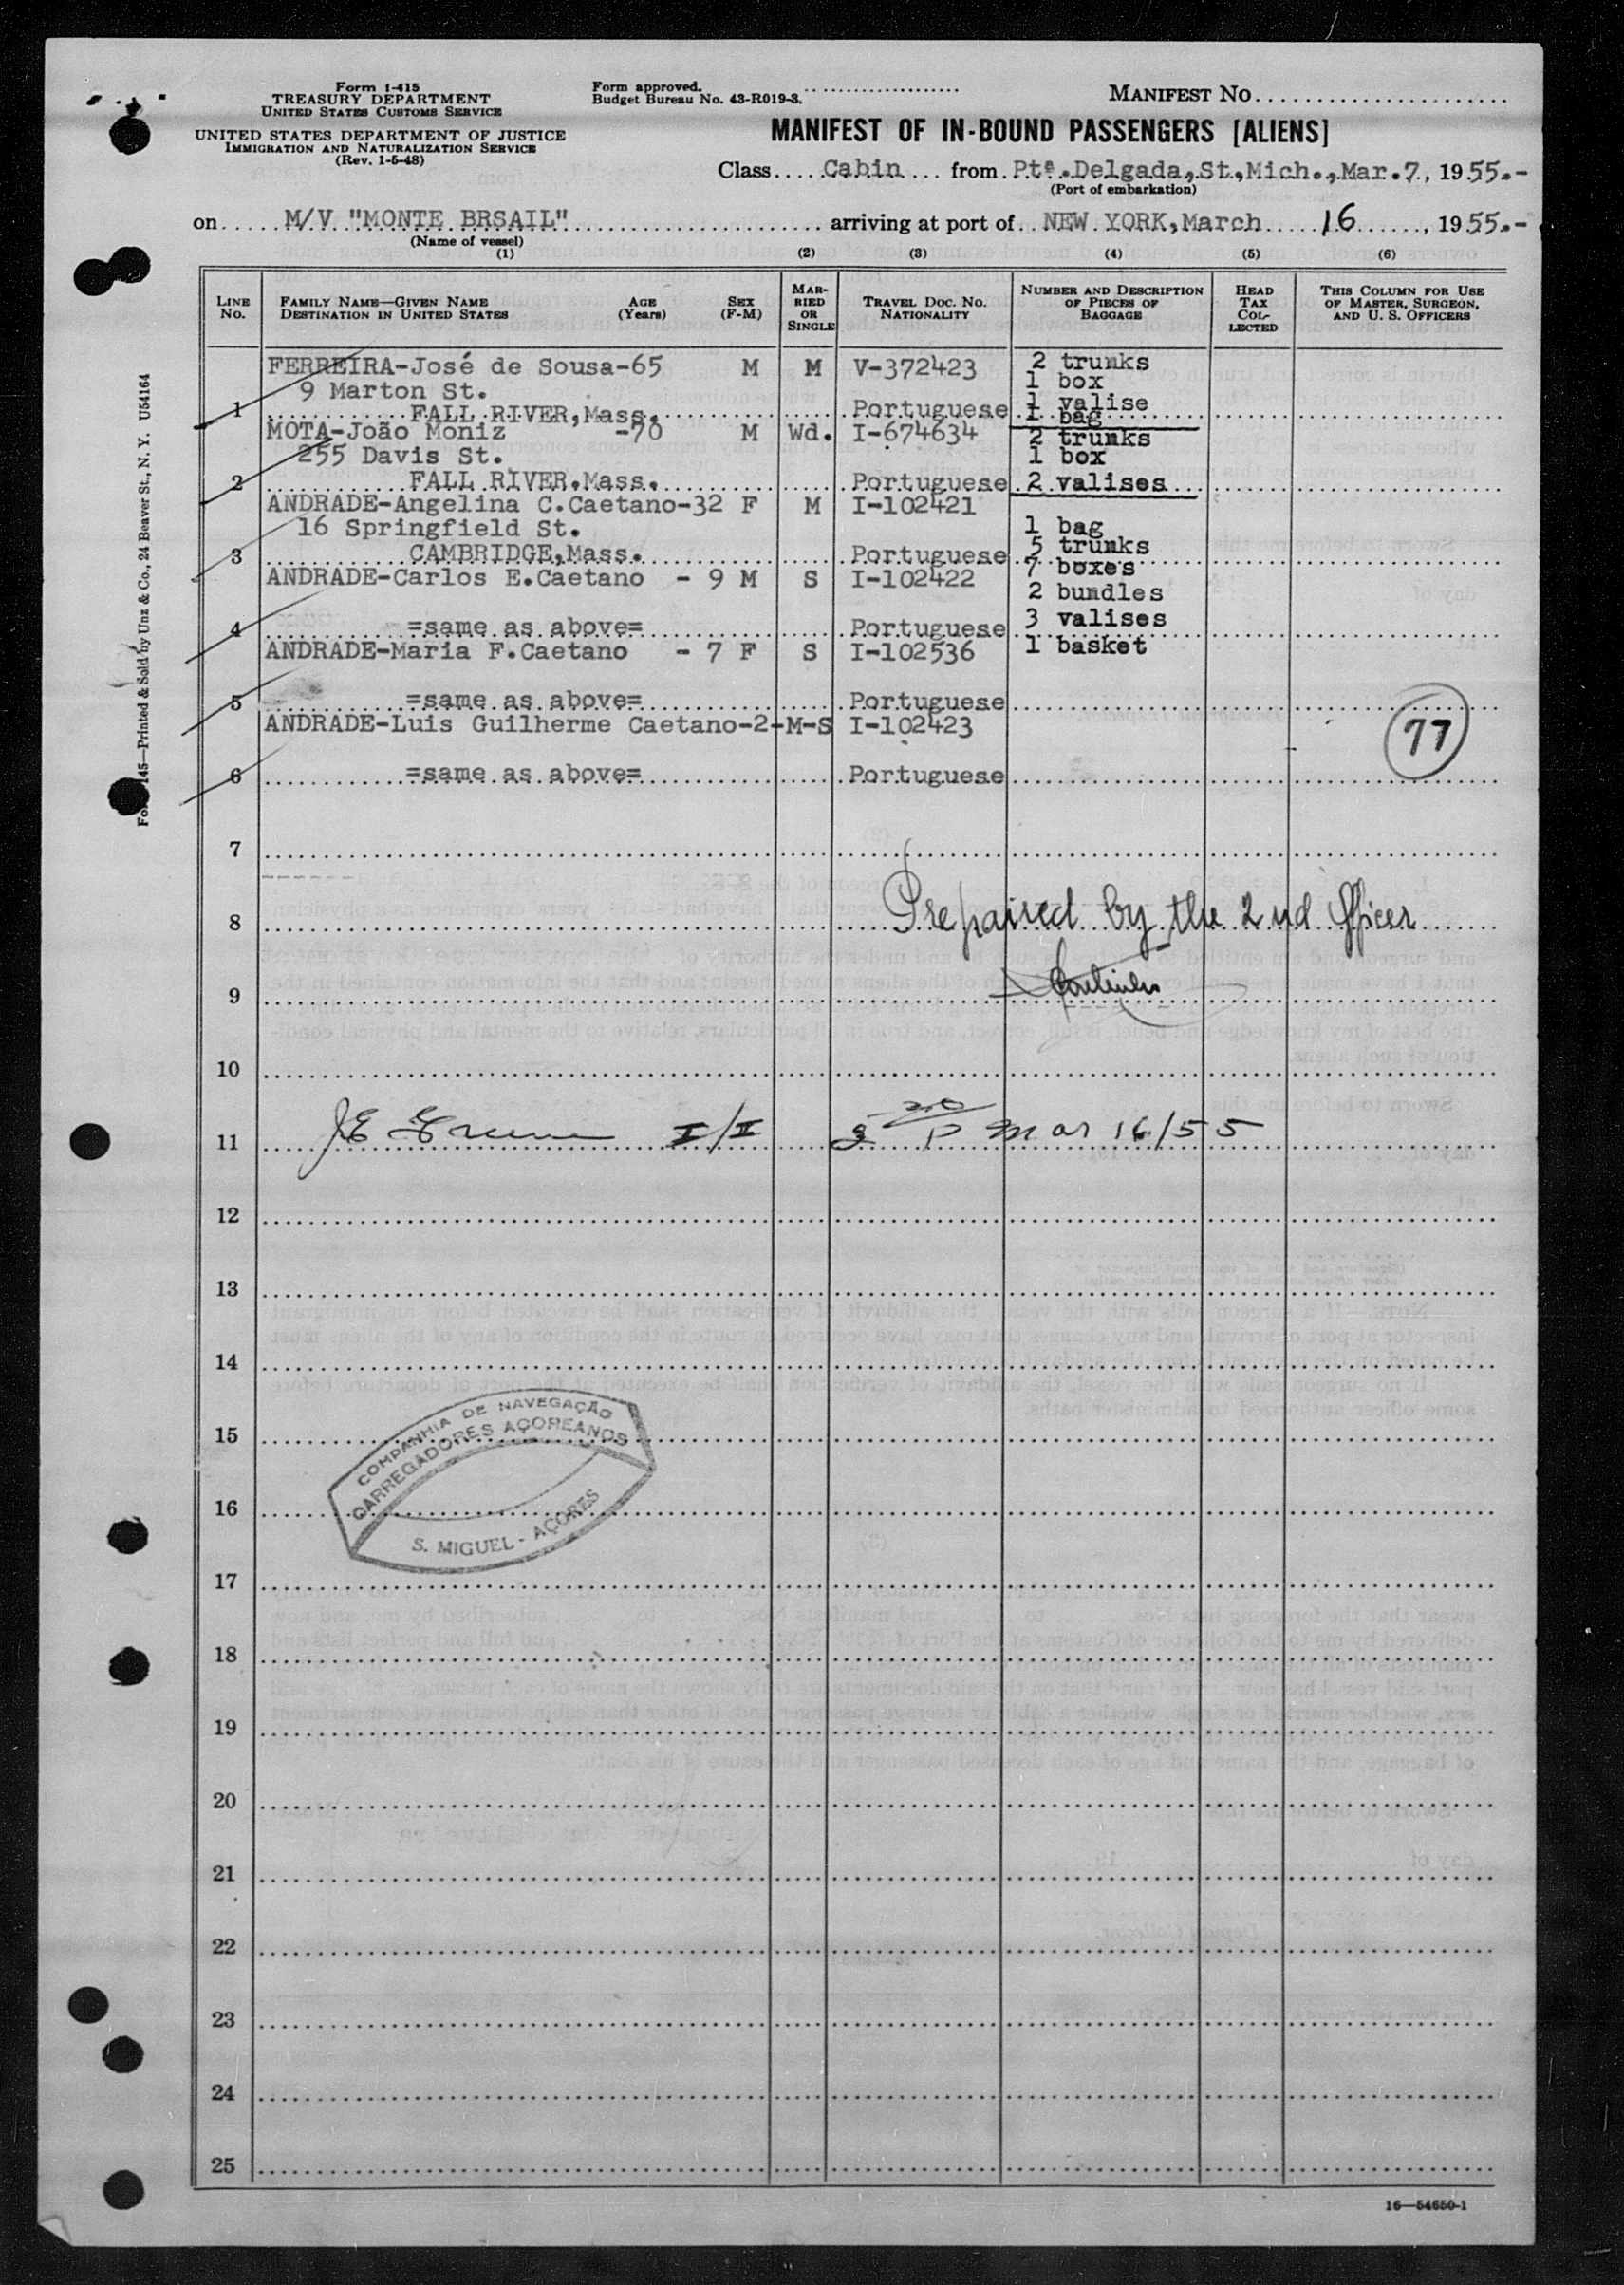 Form I-415
TREASURY DEPARTMENT
UNITED STATES CUSTOMS SERVICE
UNITED STATES DEPARTMENT OF JUSTICE
IMMIGRATION AND NATURALIZATION SERVICE
(Rev. 1-5-48)
Form approved.
Budget Bureau No. 43-R019-3.
MANIFEST NO.
MANIFEST OF IN-BOUND PASSENGERS [ALIENS]
Class Cabin from Ptª.Delgada,St,Mich.,Mar.7, 1955.-
(Port of embarkation)
on M/V "MONTE BRSAIL" arriving at port of NEW YORK,March 16, 1955.-
(Name of vessel)
(1) (2) (3) (4) (5) (6)
LINE NO. FAMILY NAME—GIVEN NAME DESTINATION IN UNITED STATES AGE (Years) SEX (F-M) MARRIED OR SINGLE TRAVEL DOC. NO. NATIONALITY NUMBER AND DESCRIPTION OF PIECES OF BAGGAGE HEAD TAX COLLECTED THIS COLUMN FOR USE OF MASTER, SURGEON, AND U. S. OFFICERS
FERREIRA-José de Sousa-65 M M V-372423 2 trunks
9 Marton St. 1 box
1 FALL RIVER,Mass. Portuguese 1 valise
1 bag
MOTA-João Moniz -70 M Wd. I-674634 2 trunks
255 Davis St. 1 box
2 FALL RIVER,Mass. Portuguese 2 valises
ANDRADE-Angelina C.Caetano-32 F M I-102421
16 Springfield St. 1 bag
3 CAMBRIDGE,Mass. Portuguese 5 trunks
7 boxes
ANDRADE-Carlos E.Caetano - 9 M S I-102422
2 bundles
4 =same as above= Portuguese 3 valises
ANDRADE-Maria F.Caetano - 7 F S I-102536 1 basket
5 =same as above= Portuguese
ANDRADE-Luis Guilherme Caetano-2-M-S I-102423
77
6 =same as above= Portuguese
7
8 Prepaired by the 2nd Officer
9
10
11 I/I Mar 16/55
12
13
14
15
16
17
18
19
20
21
22
23
24
25
COMPANHIA DE NAVEGAÇÃO
CARREGADORES AÇOREANOS
S. MIGUEL - AÇORES
145—Printed & Sold by Unz & Co., 24 Beaver St., N. Y. U54164
16—54650-1